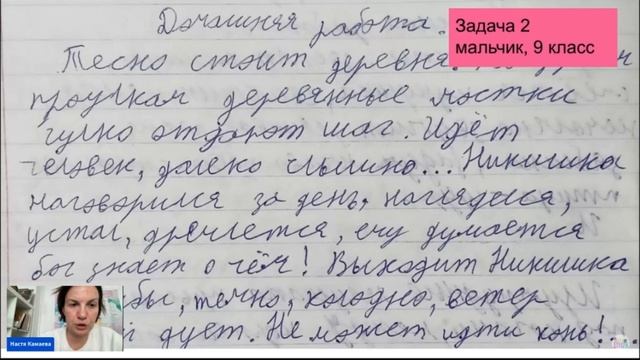 Домашняя работа.
Задача 2
мальчик, 9 класс
Тесно стоит деревня.
проулкам деревянные мостки
гулко отдают шаг. Идёт
человек, далеко слышно... Никишка
наговорился за день, нагляделся,
устал, дремлется, ему думается
бог знает о чём! Выходит Никишка
темно, холодно, ветер
дует. Не может идти конь!
Настя Камаева